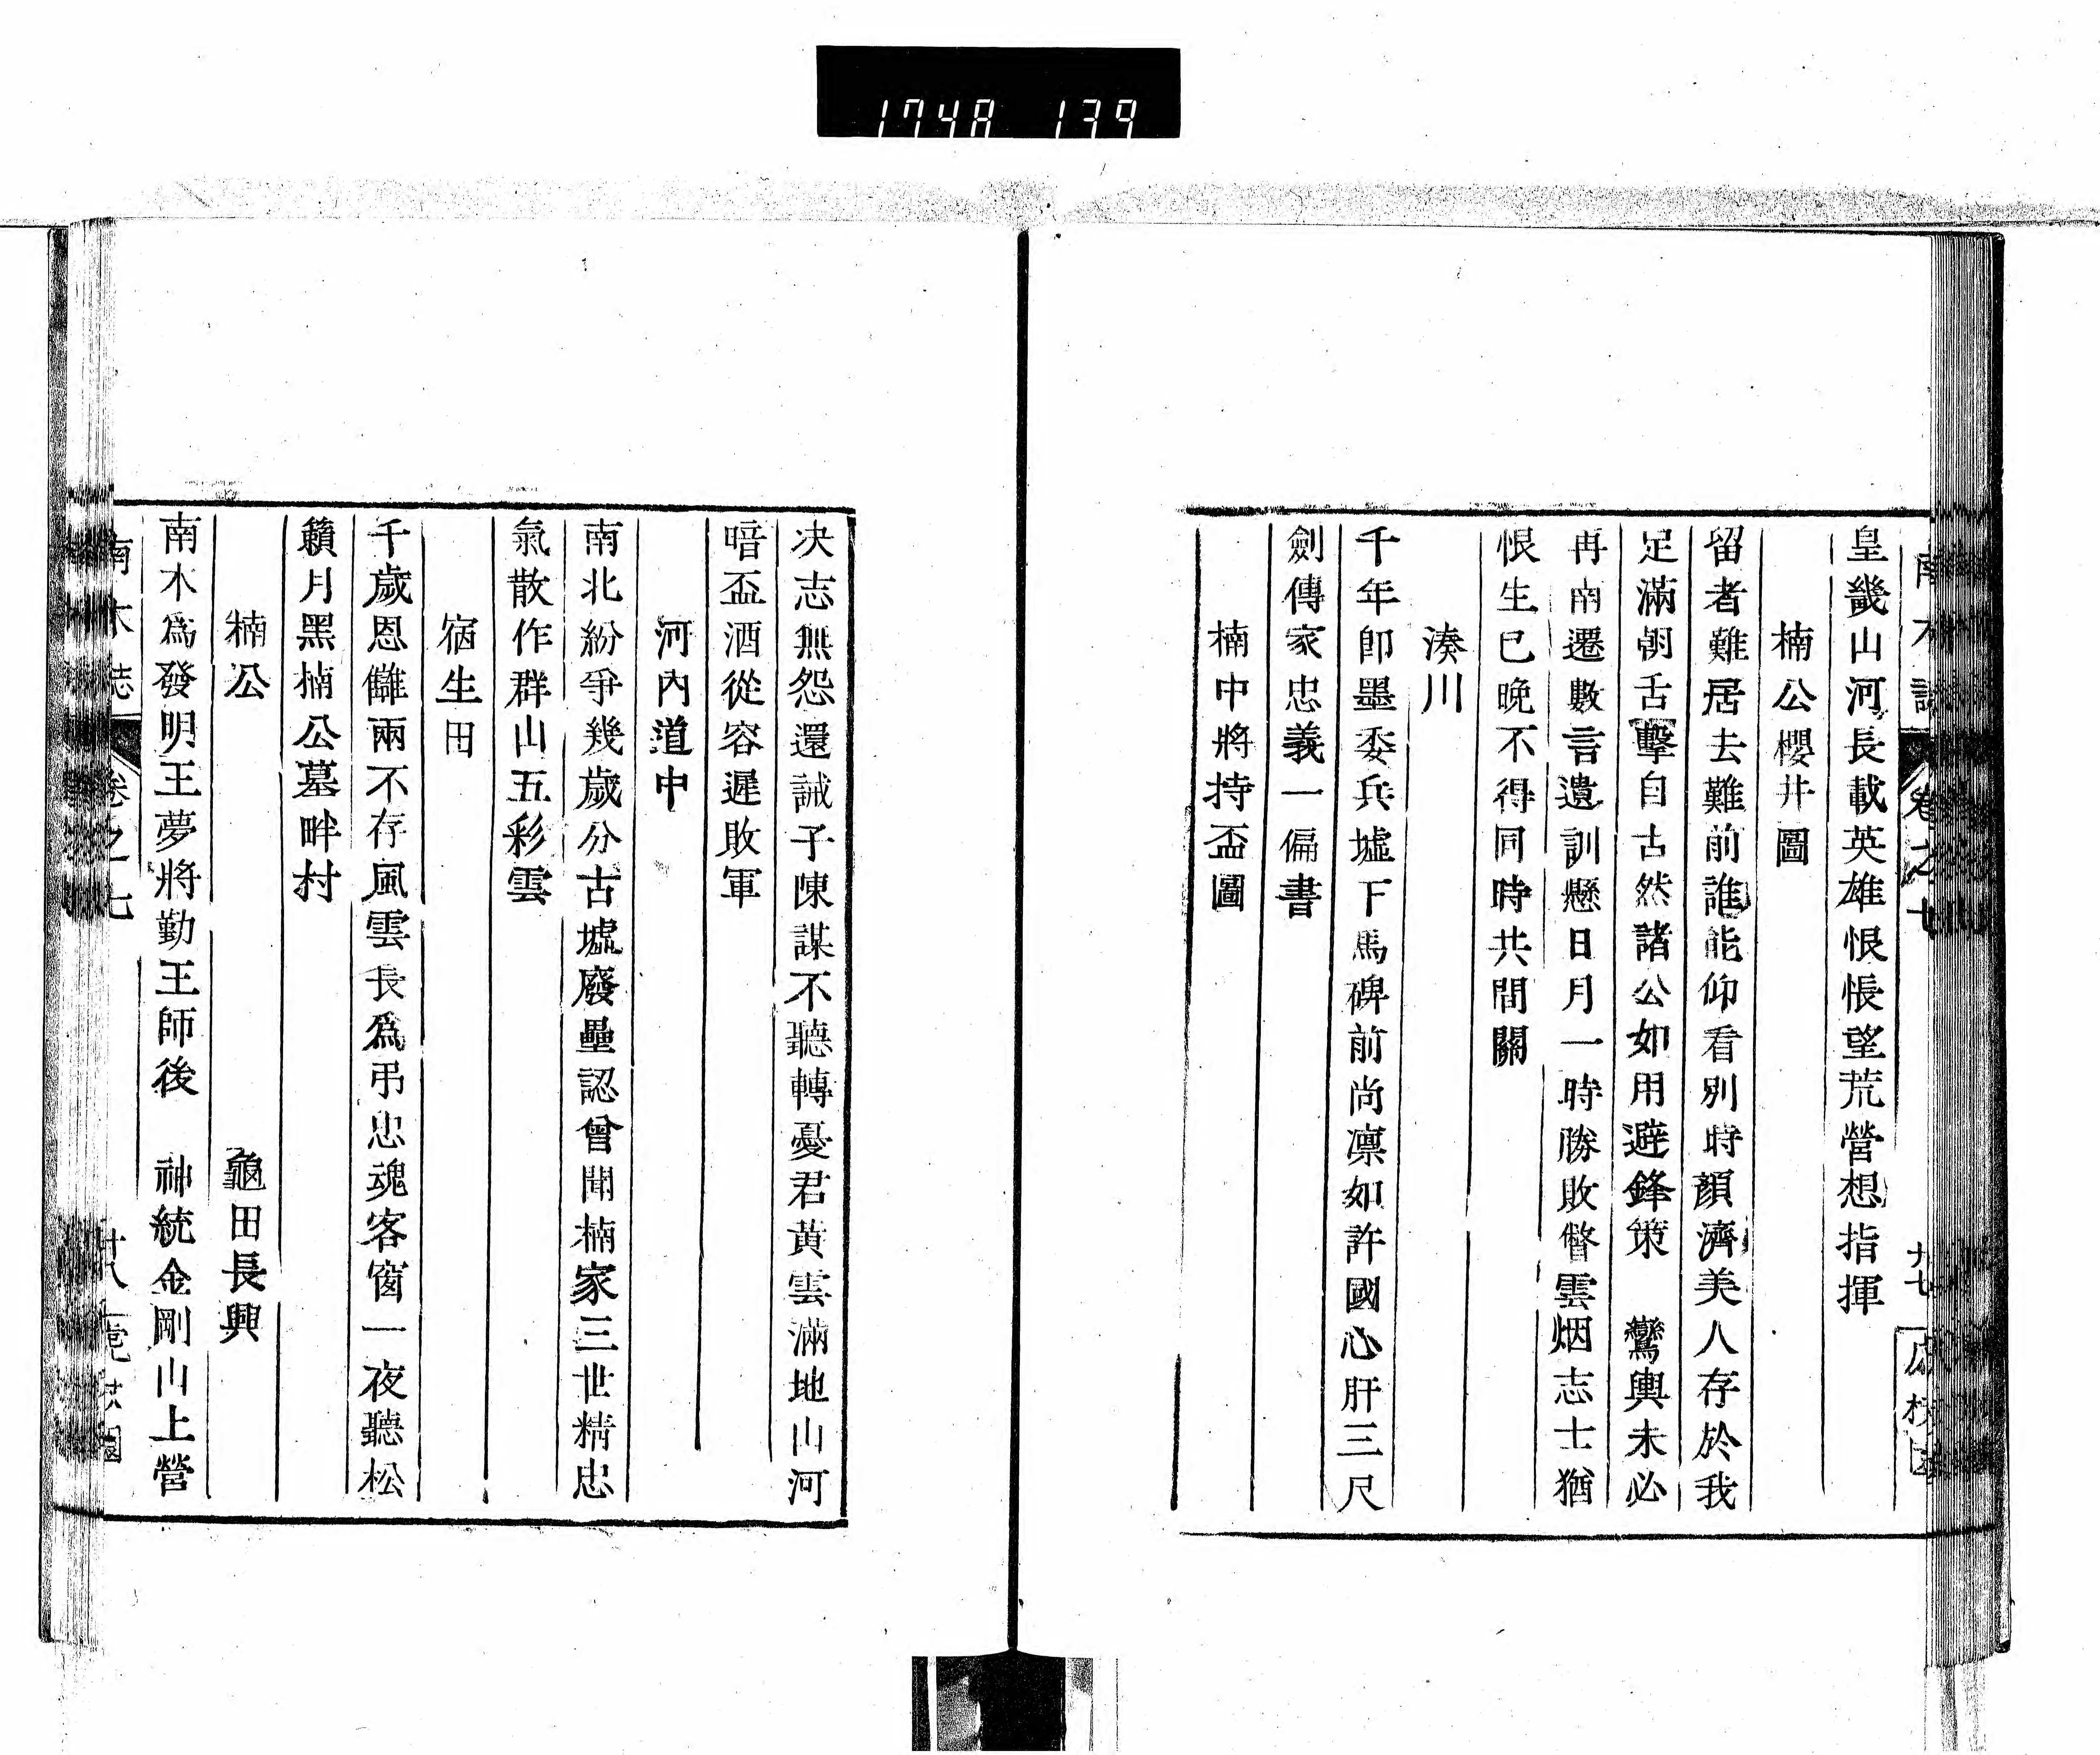 1748 139
皇畿山河長載英雄恨悵望荒營想指揮
楠公櫻井圖
留者難居去難前誰能仰看別時顏濟美人存於我
足滿朝舌擊自古然諸公如用避鋒策　鸞輿未必
再南遷數言遺訓懸日月一時勝敗瞥雲烟志士猶
恨生已晚不得同時共間關
湊川
千年即墨委兵墟下馬碑前尚凛如許國心肝三尺
劍傳家忠義一偏書
楠中將持盃圖
决志無怨還誡子陳謀不聽轉憂君黃雲滿地山河
暗盃酒從容遲敗軍
河內道中
南北紛爭幾歲分古墟廢壘認曾聞楠家三世精忠
氣散作群山五彩雲
宿生田
千歲恩讎兩不存風雲長爲弔忠魂客窗一夜聽松
籟月黑楠公墓畔村
楠公　龜田長興
南木爲發明王夢將勤王師後　神統金剛山上營
南木誌　卷之七　廿八